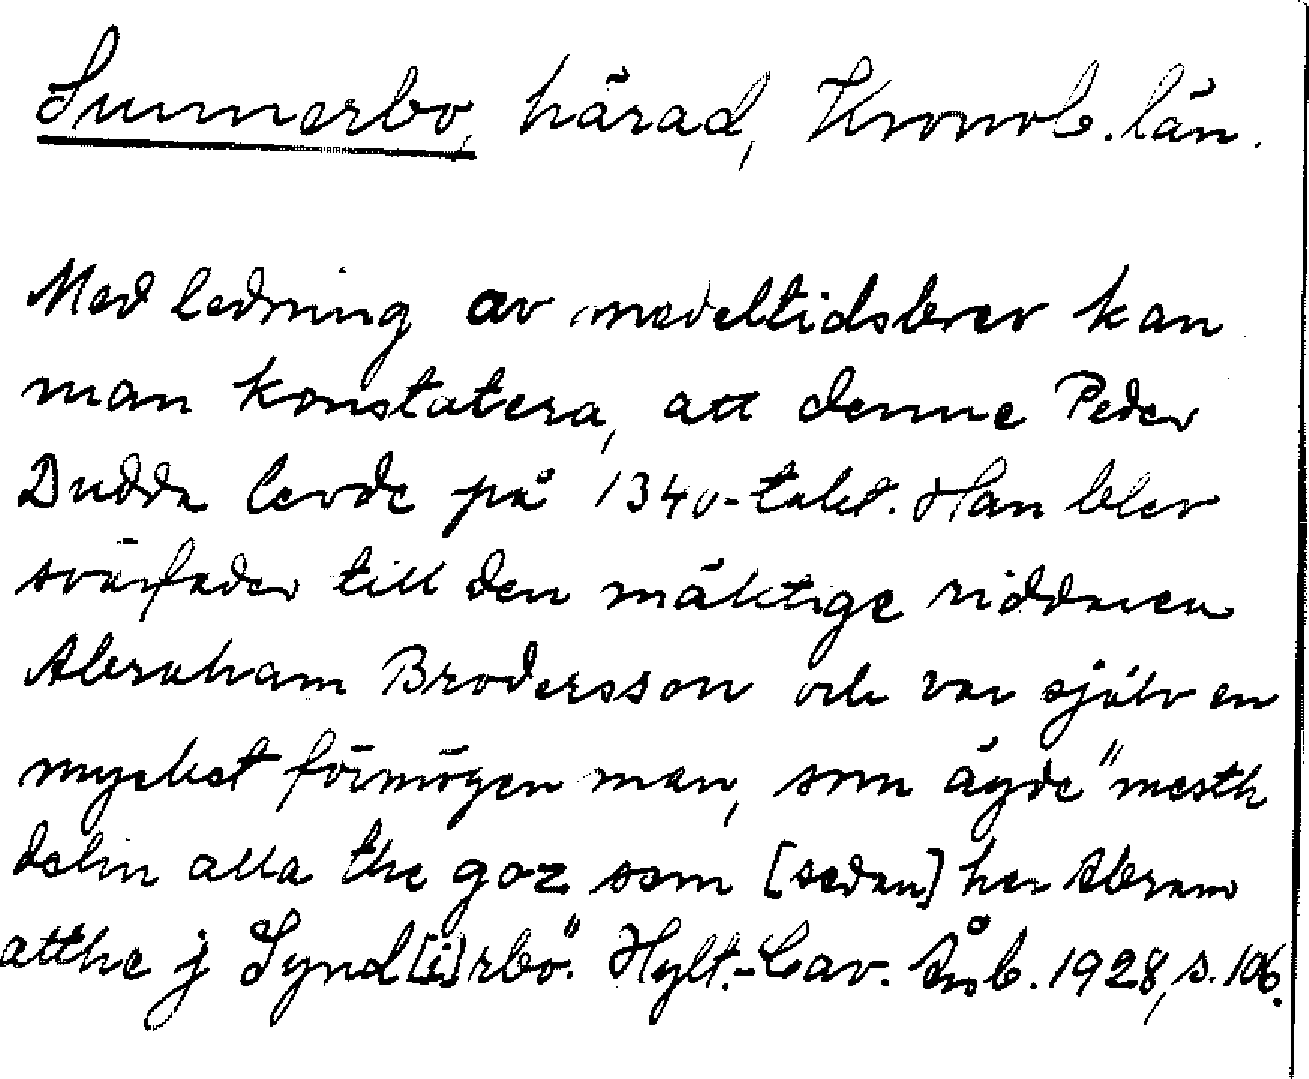 Sunnerbo, härad, Kronob. län.
Med ledning av medeltidsbrev kan
man konstatera, att denne Peder
Dudda levde på 1340-talet. Han blev
svärfader till den mäktige riddaren
Abraham Brodersson och var själv en
mycket förmögen man, som ägde "mesth
delin alla the goz som [sedan] her Abram
atthe j Synd[i]rbo". Hylt.-Cav. Årsb. 1928, s. 106.